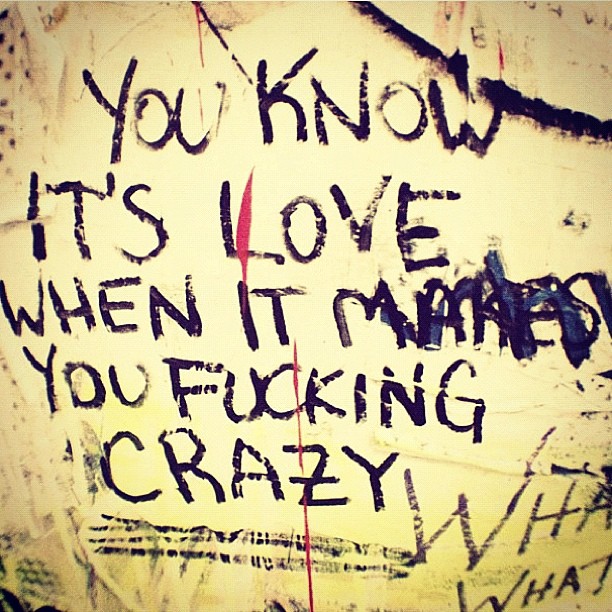 YOU KNOW
IT'S LOVE
WHEN IT MAKES
YOU FUCKING
CRAZY
WHA
WHAT